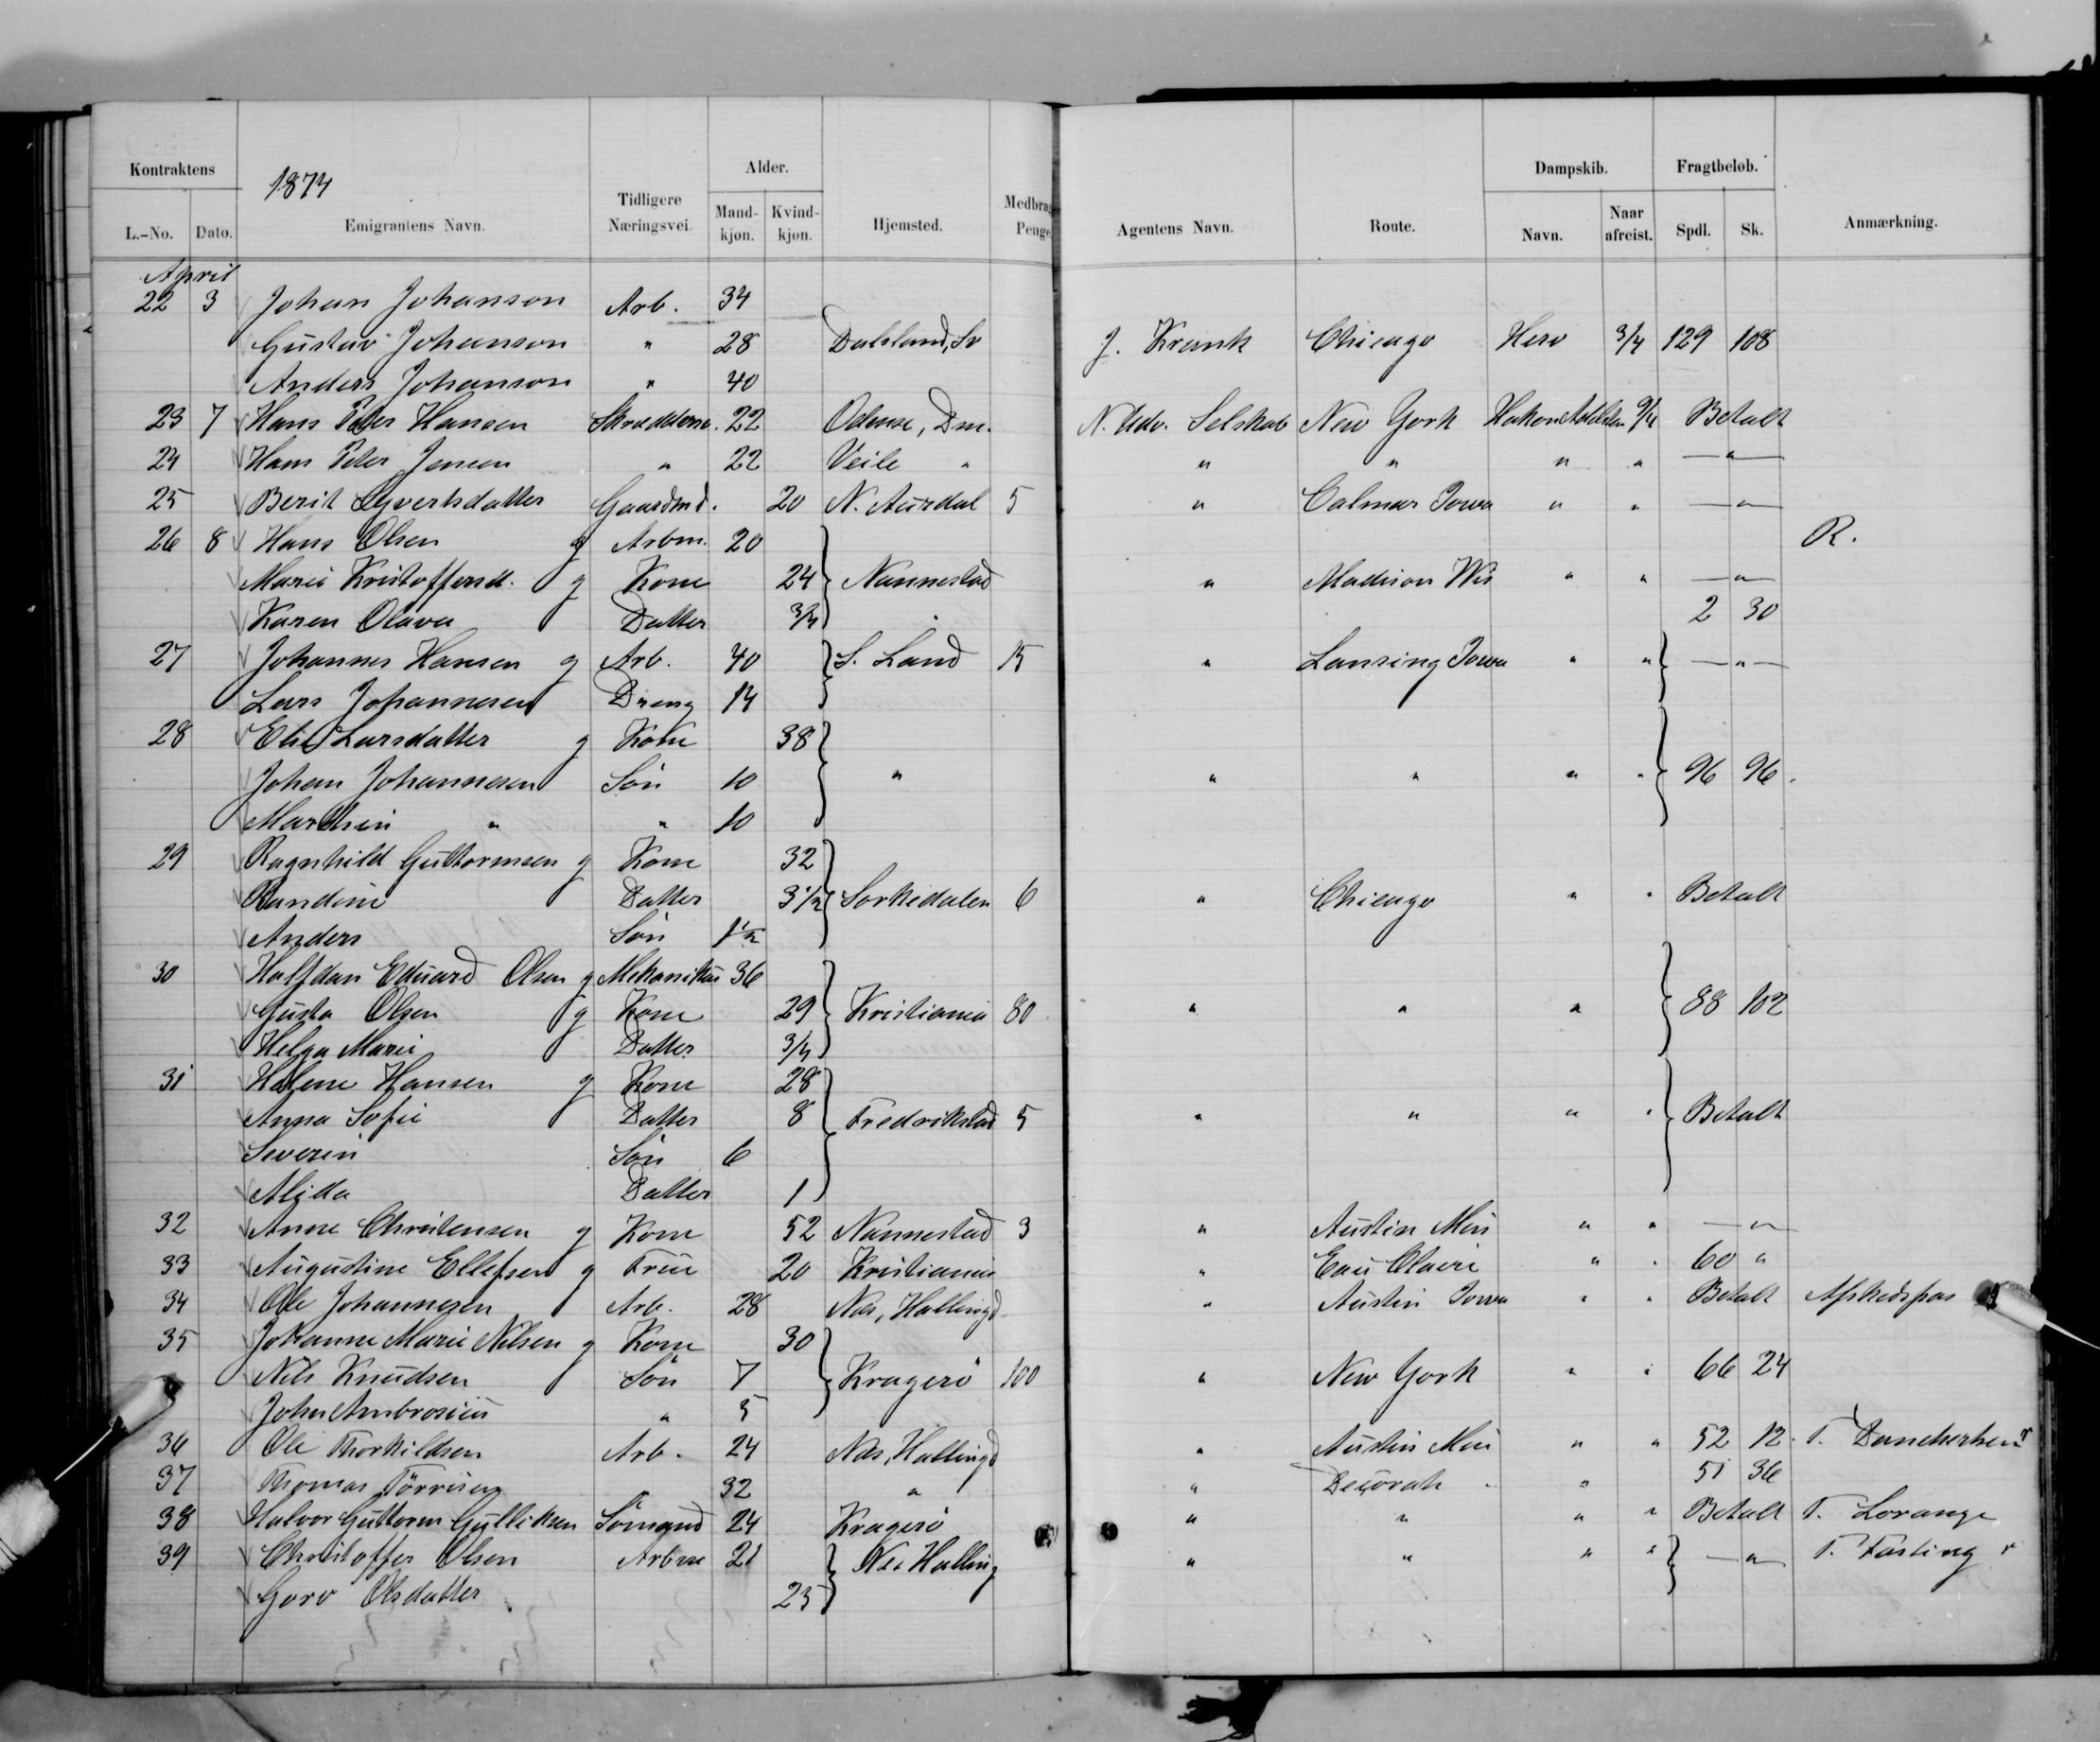 Kontraktens 1874 Emigrantens Navn. Tidligere Næringsvei. Alder. Hjemsted. Medbrag Penge Agentens Navn. Route. Dampskib. Fragtbeløb. Anmærkning.
L.-No. Dato. Mand-kjøn. Kvind-kjøn. Navn. Naar afreist. Spdl. Sk.
April
22 3 Johan Johanson Arb. 34
Gustav Johanson " 28 Dalsland, Sv J. Krank Chicago Hero 3/4 129 108
Anders Johanson " 40
23 7 Hans Peter Hansen Skræddersv. 22 Odense, Dm. N. Udv. Selskab New York Hakon Adelsten 9/4 Betalt
24 Hans Peter Jensen " 22 Veile " " " " " — " —
25 Berit Syvertsdatter Gaardmd. 20 N. Aurdal 5 " Calmar Iowa " " — " —
26 8 Hans Olsen g Arbm. 20 R.
Marie Kristoffersd. g Kone 24 Nannestad " Madison Wis " " — " —
Karen Olava Datter 3/4 2 30
27 Johannes Hansen g Arb. 40 S. Land 15 " Lansing Iowa " " — " —
Lars Johannesen Dreng 14
28 Elie Larsdatter g Kone 38
Johan Johannesen Søn 10 " " " " " 96 96.
Martin " " 10
29 Ragnhild Guttormsen g Kone 32
Randine Datter 3 1/2 Sørkedalen 6 " Chicago " " Betalt
Anders Søn 1 1/2
30 Halfdan Eduard Olsen g Mekanikus 36
Gusta Olsen g Kone 29 Kristiania 80 " " " 88 102
Helga Marie Datter 3/4
31 Helene Hansen g Kone 28
Anna Sofie Datter 8 Fredrikstad 5 " " " " Betalt
Severin Søn 6
Alida Datter 1
32 Anne Christensen g Kone 52 Nannestad 3 " Austin Min " " — " —
33 Augustine Ellefsen g Frue 20 Kristiania " Eau Claire " " 60 "
34 Ole Johannesen Arb. 28 Næs, Hallingd " Austin Iowa " " Betalt Afskedspas
35 Johanne Marie Nilsen g Kone 30
Nils Knudsen Søn 7 Kragerö 100 " New York " " 66 24
John Ambrosius " 5
36 Ole Thorkildsen Arb. 24 Næs, Hallingd " Austin Min " " 52 12. T.
37 Thomas 32 " " Decorah " " 51 36
38 Halvor Guttorm Gulliksen Sömand 24 Kragerö " " " " Betalt T. Lorange
39 Christoffer Olsen Arbm 21 Næs Halling " " " " — " — T. Fasting
Goro Olsdatter 25